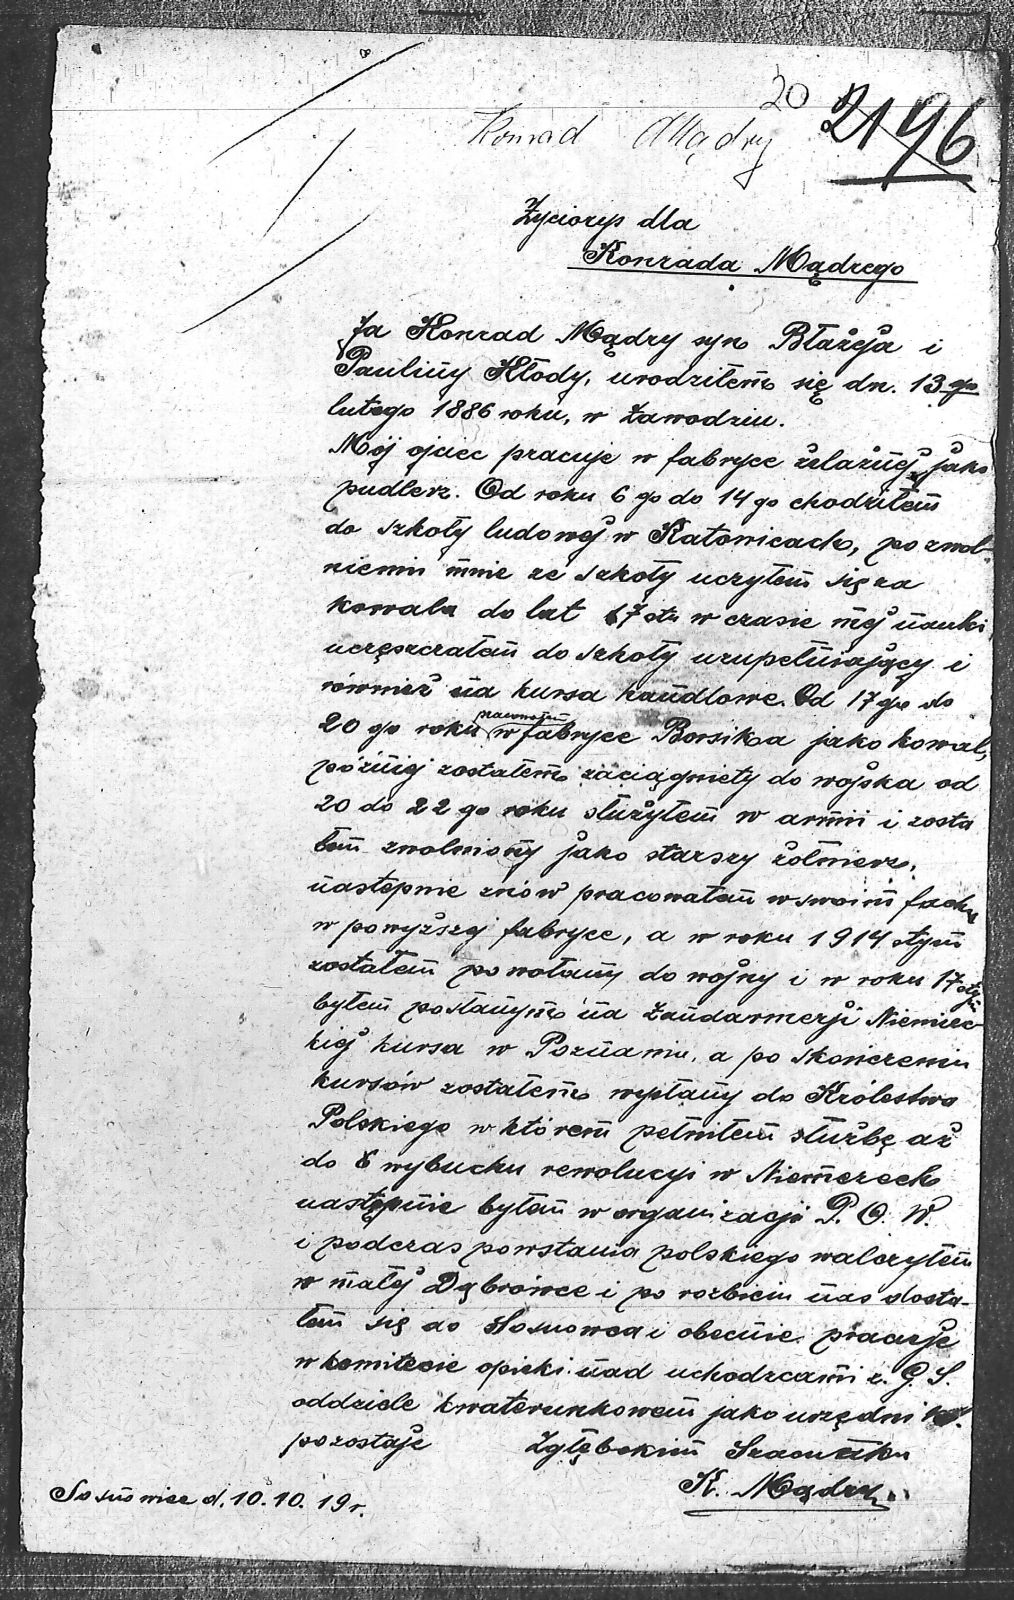 20
2196
Konrad Mądry
Życiorys dla
Konrada Mądrego
Ja Konrad Mądry syn Błażeja i
Pauliny Kłody, urodziłem się dn. 13 go
lutego 1886 roku, w Zawodziu.
Mój ojciec pracuje w fabryce żelaznej jako
pudlerz. Od roku 6 go do 14 go chodziłem
do szkoły ludowej w Katowicach, po zwol-
nieniu mnie ze szkoły uczyłem się za
kowala do lat 17 stu w czasie mej nauki
uczęszczałem do szkoły uzupełniający i
również na kursa handlowe. Od 17 go do
20 go roku pracowałem w fabryce Borsika jako kowal,
później zostałem zaciągniety do wojska od
20 do 22 go roku służyłem w armii i zosta
łem zwolniony jako starszy żołnierz,
następnie znów pracowałem w swoim fachu
w powyższej fabryce, a w roku 1914 stym
zostałem powołany do wojny i w roku 17 stym
byłem posłanym na Żandarmerji Niemiec-
kiej kursa w Poznaniu, a po skończeniu
kursów zostałem wysłany do Królestwa
Polskiego w którem pełniłem służbę aż
do wybuchu rewolucyi w Niemczech
następnie byłem w organizacji P. O. W.
i podczas powstania polskiego walczyłem
w małej Dąbrówce i po rozbiciu nas dosta-
łem się do Sosnowca i obecnie pracuje
w komitecie opieki nad uchodzcami z. G. S.
oddziele kwaterunkowem jako
pozostaje Zgłębokim Szacunku
K. Mądry
Sosnowiec d. 10. 10. 19 r.